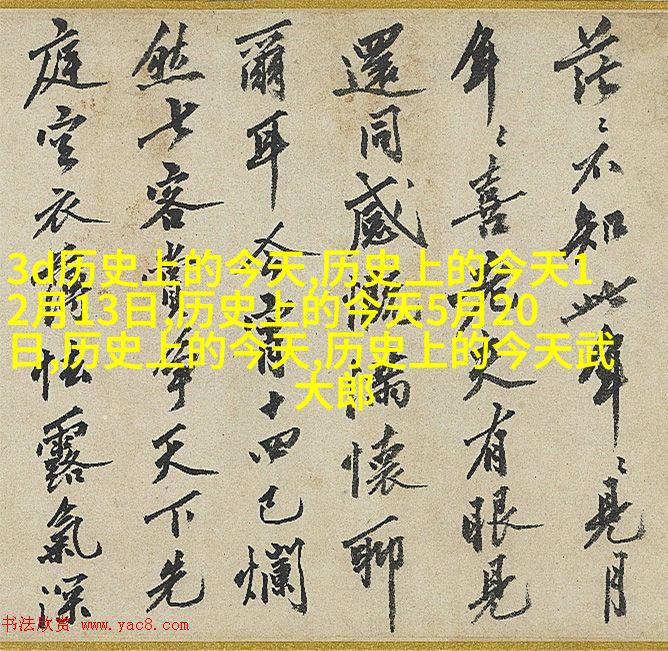 茫〻不知此年〻見月
年〻喜有眼見
還同感慨懷聊
爾耳今宵十四已爛
然七客賞爭天下先
庭空衣怯露氣深
3d历史上的今天,历史上的今天1
2月13日,历史上的今天5月20
日,历史上的今天,历史上的今天武
大郎
书法欣赏 www.yac8.com